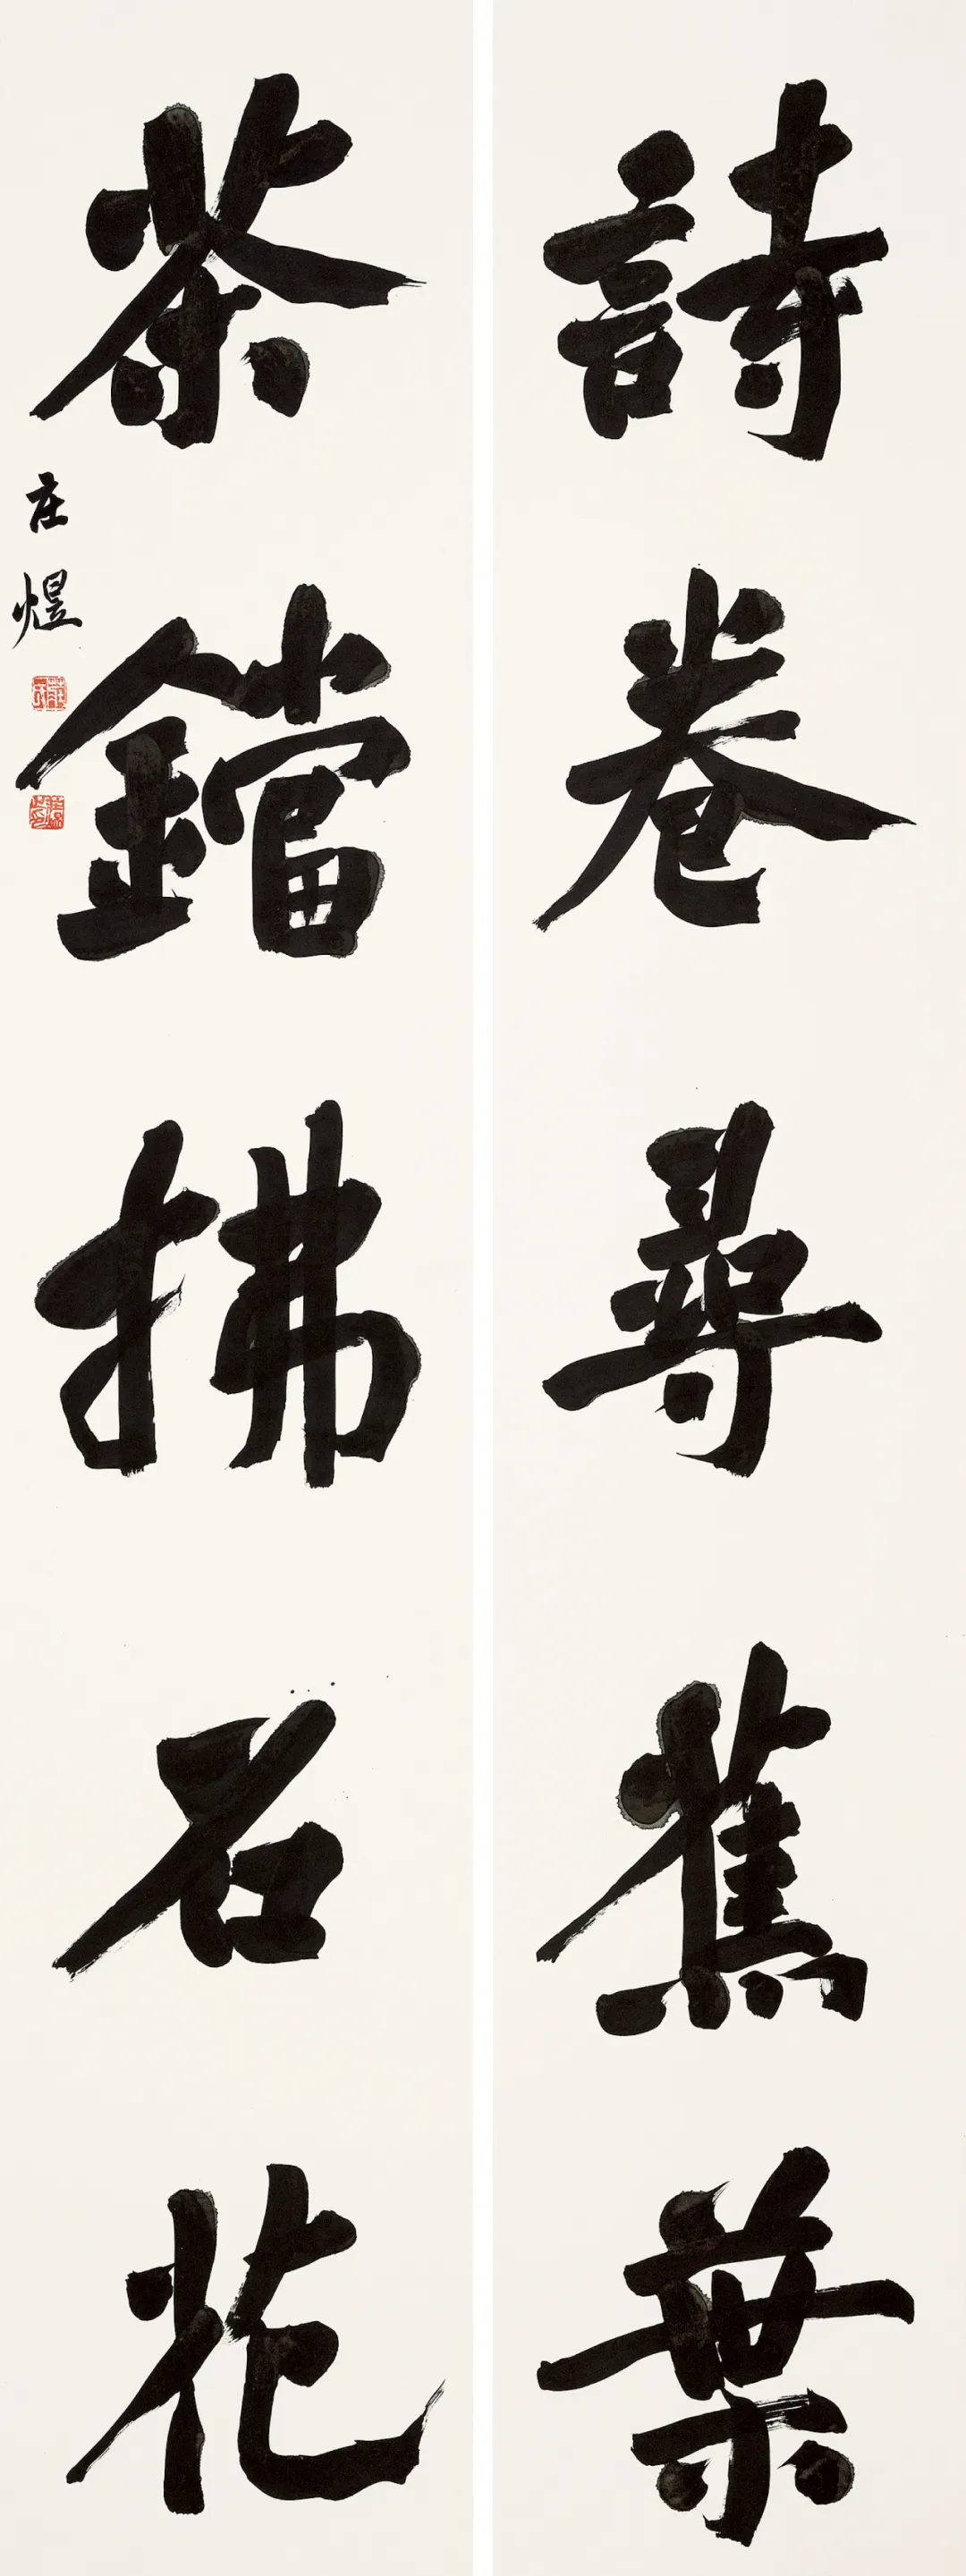 詩卷尋蕉葉
茶鐺拂石花
庄煜